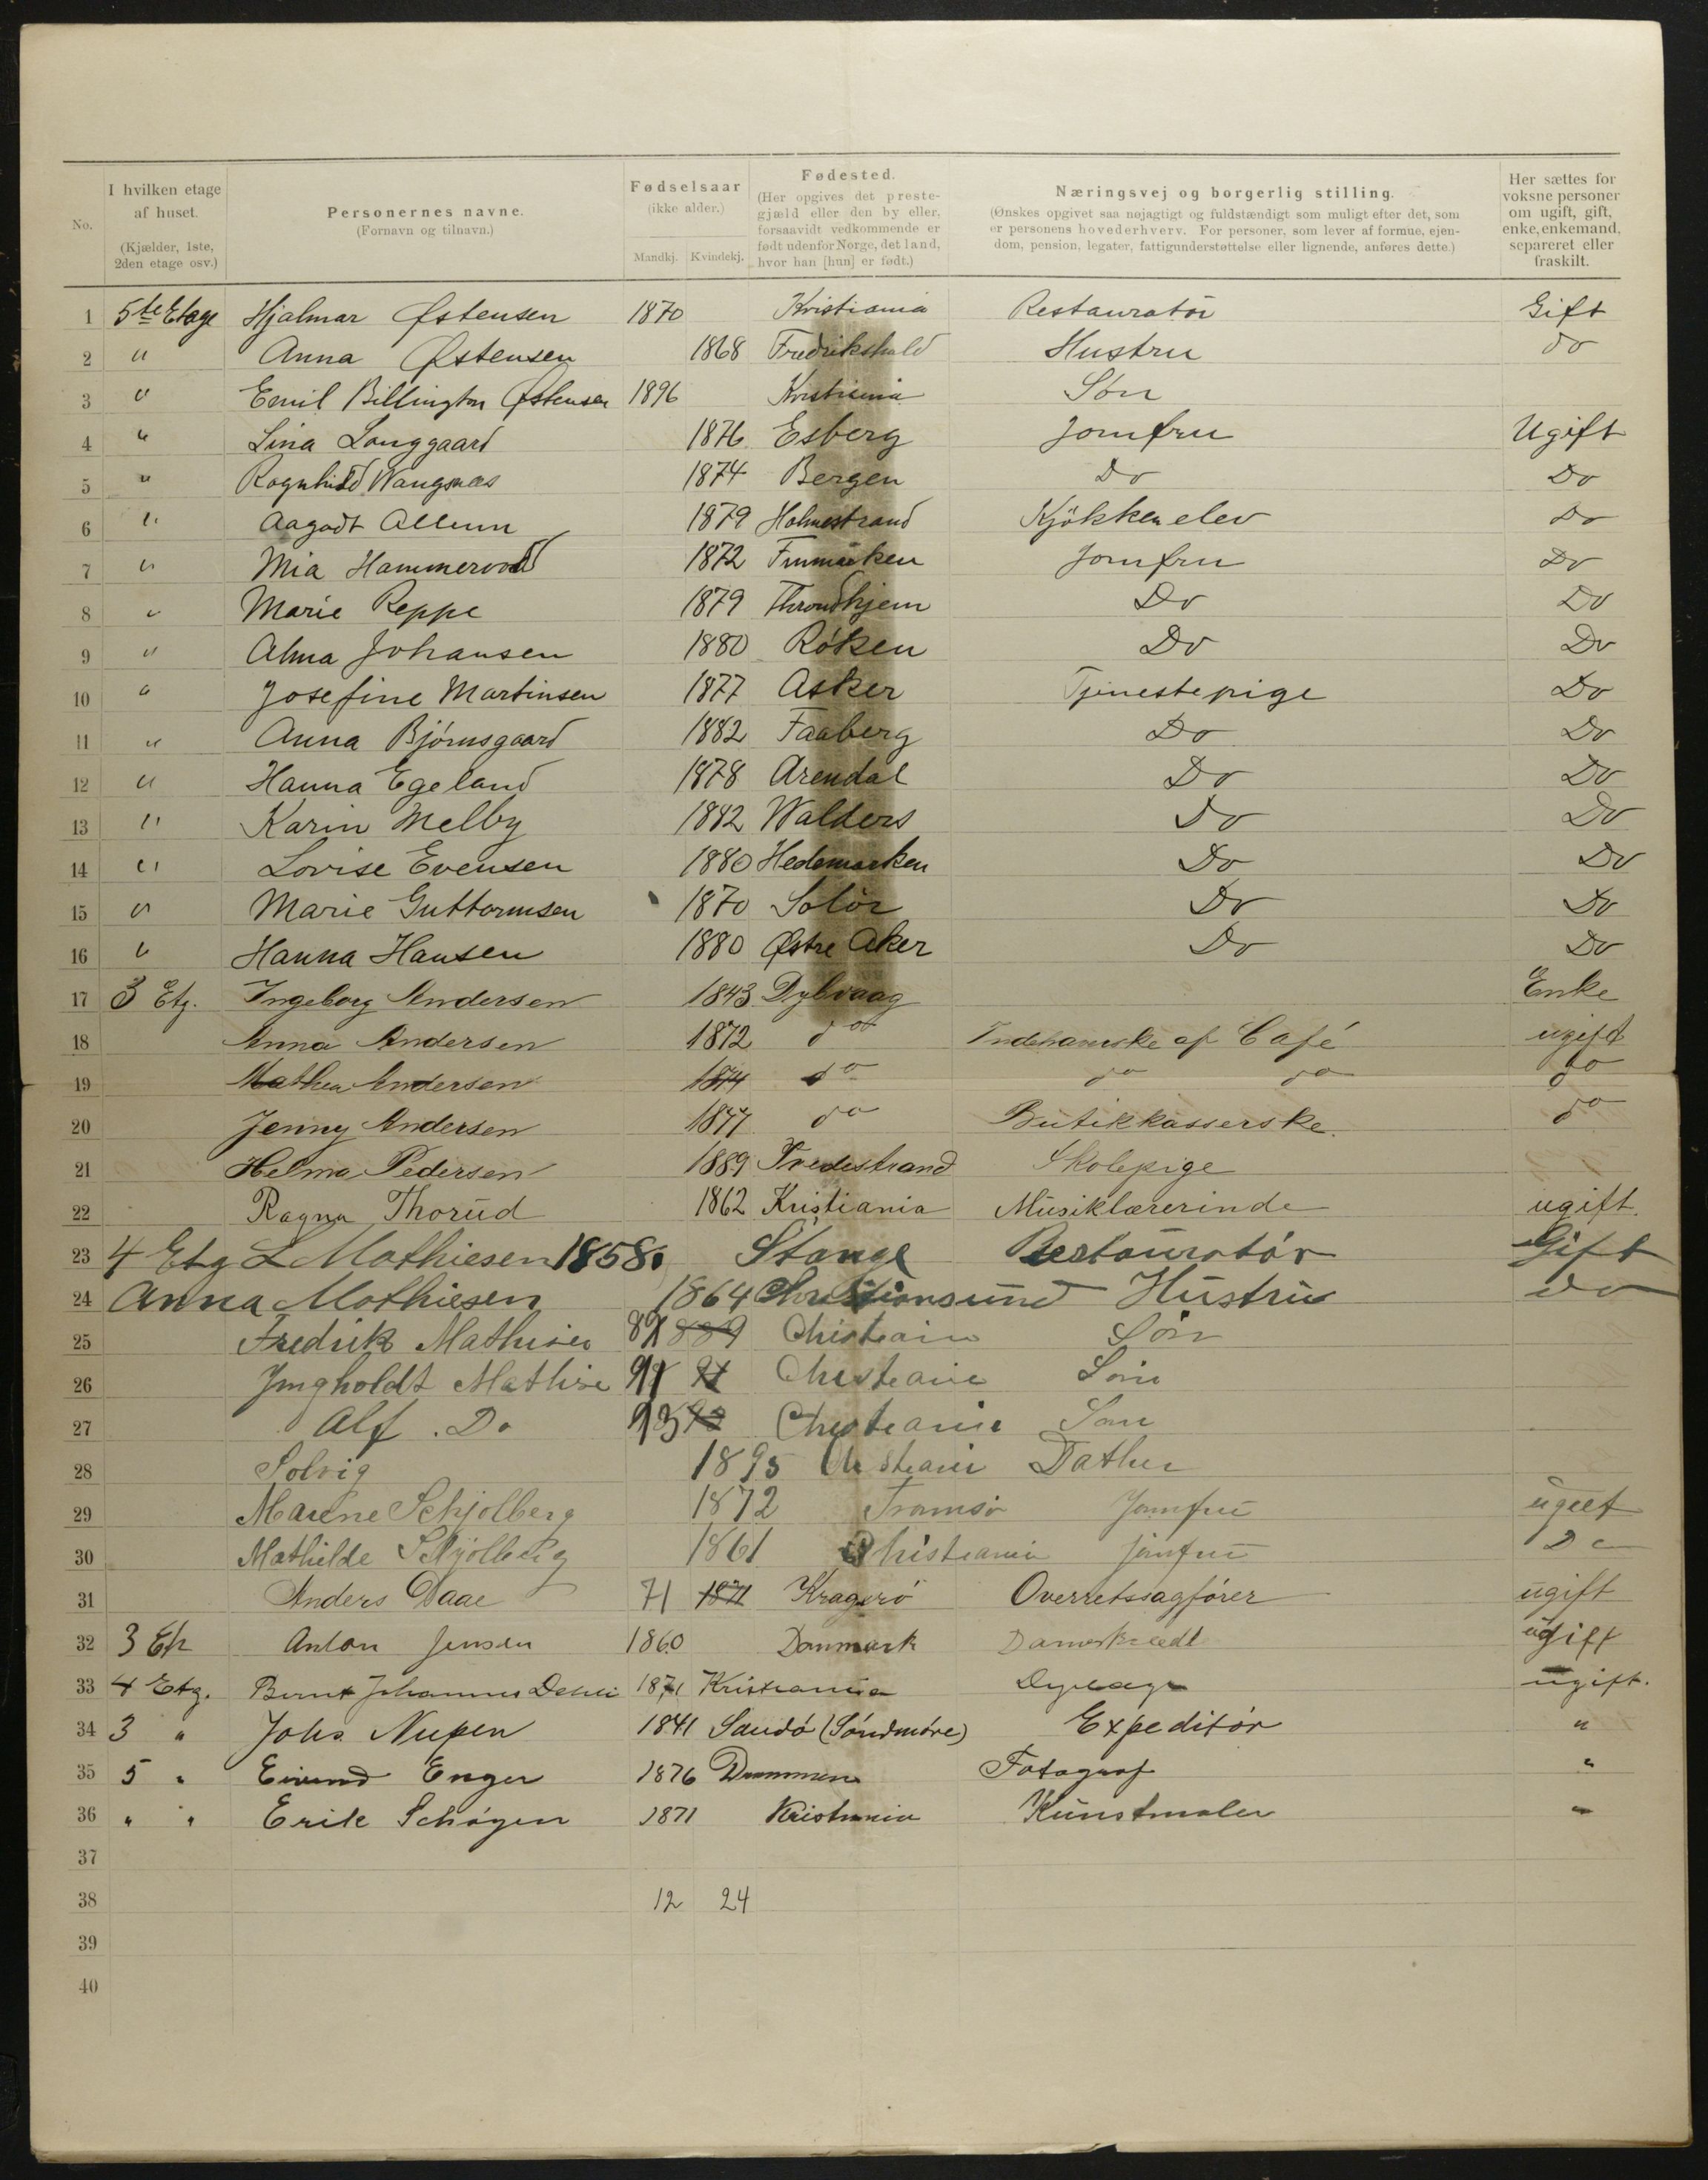 No.
I hvilken etage af huset. (Kjælder, 1ste, 2den etage osv.)
Personernes navne. (Fornavn og tilnavn.)
Fødselsaar (ikke alder.) Mandkj. Kvindekj.
Fødested. (Her opgives det prestegjæld eller den by eller, forsaavidt vedkommende er født udenfor Norge, det land, hvor han [hun] er født.)
Næringsvej og borgerlig stilling. (Ønskes opgivet saa nøjagtigt og fuldstændigt som muligt efter det, som er personens hovederhverv. For personer, som lever af formue, ejendom, pension, legater, fattigunderstøttelse eller lignende, anføres dette.)
Her sættes for voksne personer om ugift, gift, enke, enkemand, separeret eller fraskilt.
1 5te Etage Hjalmar Østensen 1870 Kristiania Restauratör Gift
2 " Anna Østensen 1868 Fredrikshald Hustru do
3 " Emil Billington Østensen 1896 Kristiania Søn
4 " Lina Langgaard 1876 Esberg Jomfru Ugift
5 " Ragnhild Wangsnæs 1874 Bergen Do Do
6 " Aagodt Allum 1879 Holmestrand Kjökken elev Do
7 " Mia Hammervold 1872 Finmarken Jomfru Do
8 " Marie Reppe 1879 Throndhjem Do Do
9 " Alma Johansen 1880 Røken Do Do
10 " Josefine Martinsen 1877 Asker Tjenestepige Do
11 " Anna Bjørnsgaard 1882 Faaberg Do Do
12 " Hanna Egeland 1878 Arendal Do Do
13 " Karin Melby 1882 Walders Do Do
14 " Lovise Evensen 1880 Hedemarken Do Do
15 " Marie Guttormsen 1870 Solör Do Do
16 " Hanna Hansen 1880 Østre Aker Do Do
17 3 Etg. Ingeborg Andersen 1843 Dybvaag Enke
18 Anna Andersen 1872 do Indehaverske af Café ugift
19 Mathea Andersen 1874 do do do do
20 Jenny Andersen 1877 do Butikkasserske. do
21 Helma Pedersen 1889 Tvedestrand Skolepige
22 Ragna Thorud 1862 Kristiania Musiklærerinde ugift.
23 4 Etg L Mathiesen 1858 Stange Restauratör Gift
24 Anna Mathiesen 1864 Christiansund Hustru do
25 Fredrik Mathisen 89 1889 Christiania Sön
26 Mathise 91 91 Christiania Sön
27 Alf. Do 93 93 Christiania Sön
28 Solvig 1895 Christiania Dather
29 Marene Schjolberg 1872 Tromsö Jomfru ugift
30 Mathilde Schjolberg 1861 Christiania jomfru Do
31 Anders Daae 71 1871 Kragerö Overretssagförer ugift
32 3 Et Anton Jensen 1860 Danmark ugift
33 4 Etg. Bernt Johannes 1871 Kristiania ugift.
34 3 " Johs. Nupen 1841 Sandö (Söndmöre) Expeditör "
35 5 " Eivind Enger 1876 Drammen Fotograf "
36 " " Erik Schøyen 1871 Kristiania Kunstmaler "
37
38 12 24
39
40